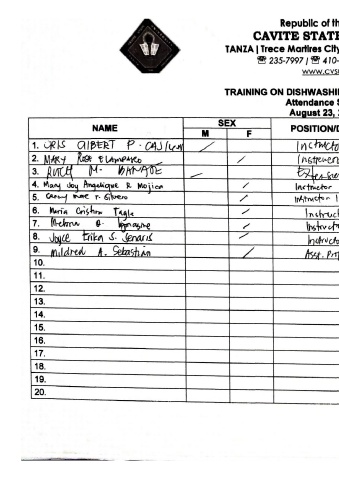 Republic of th
CAVITE STATE
TANZA | Trece Martires City
☏ 235-7997 | ☏ 410-
www.cvs
TRAINING ON DISHWASHI
Attendance S
August 23,
NAME SEX POSITION/D
M F
1. CRIS GILBERT P. / Instructor
2. MARY Rose / Instructor
3. M. /
4. Mary Joy Angelique R. Mojica / Instructor
5. mae T. / Instructor I
6. Maria Cristina Tagle / Instruct
7. / Instructo
8. Joyce Erika S. Senaris / Instructo
9. Mildred A. Sebastian / Asst. Prof
10.
11.
12.
13.
14.
15.
16.
17.
18.
19.
20.